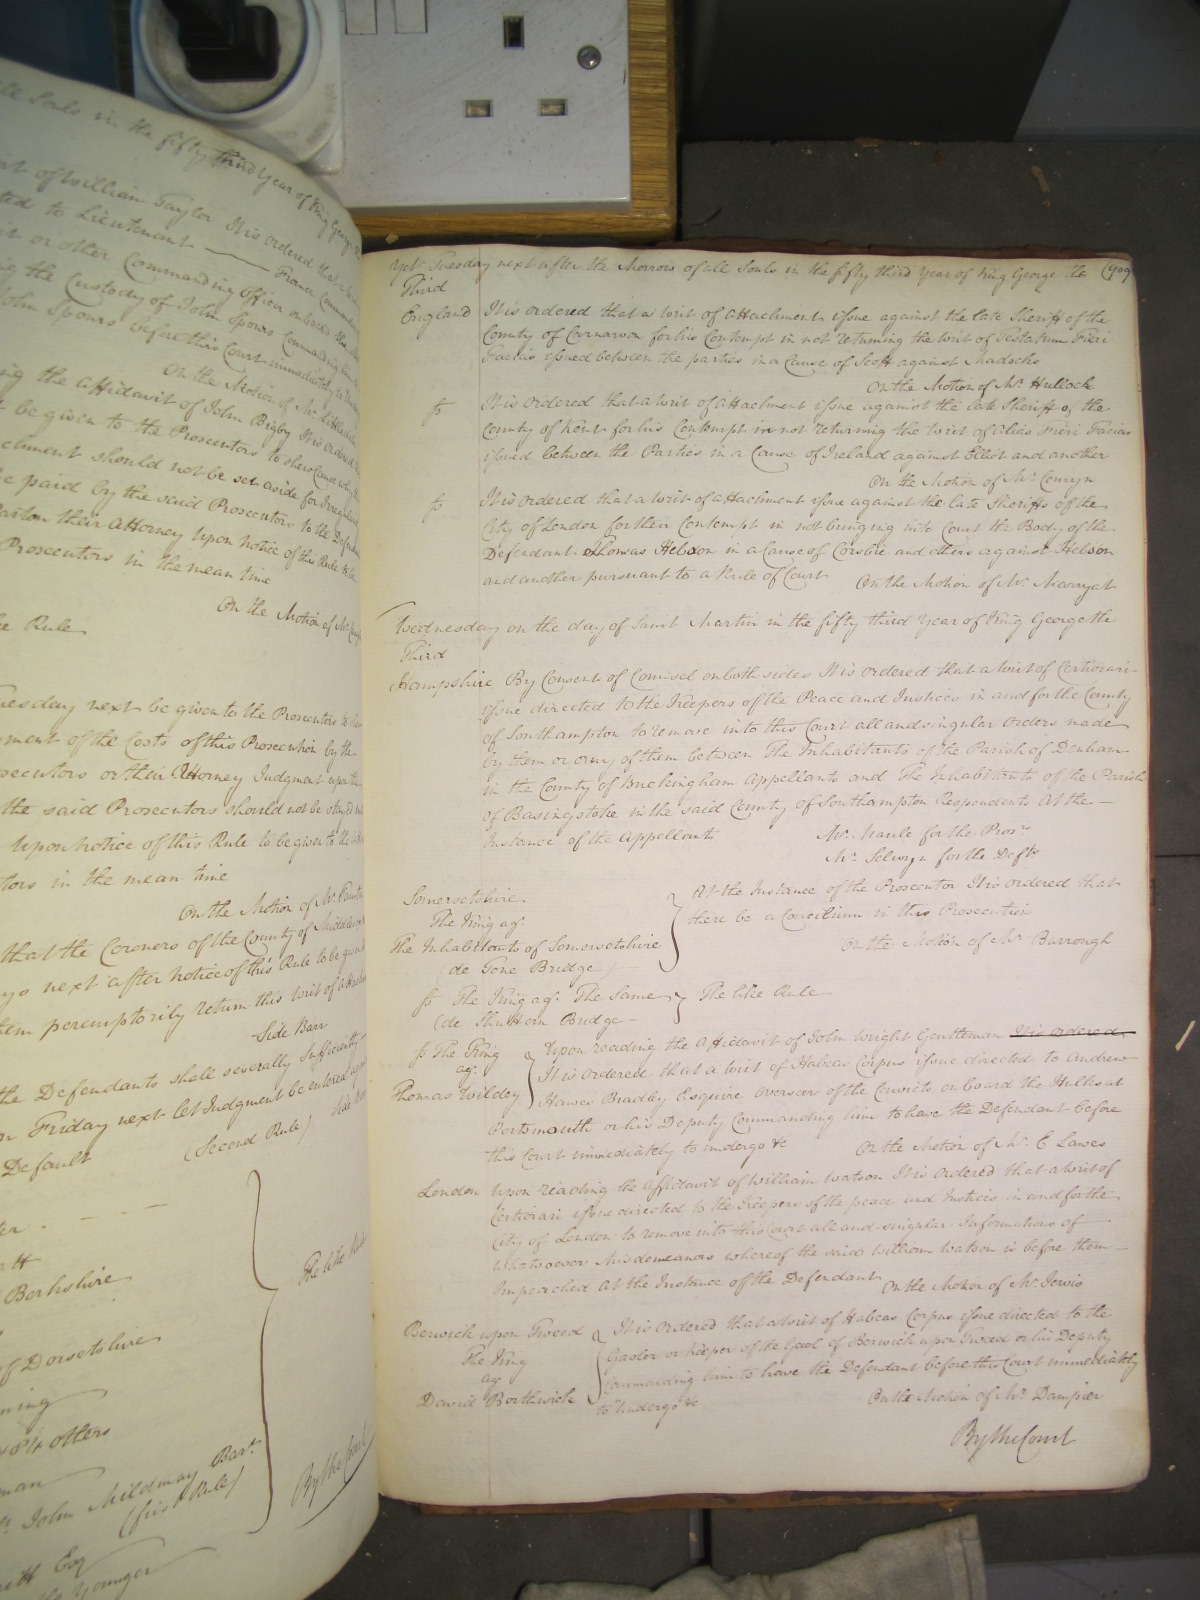 all Souls in the fifty third Year of King George the
of William Taylor It is ordered that a
ted to Lieutenant — France Commander
it or other Commanding Officer onboard the
ing the Custody of John Spours Commanding him
John Spours before this Court immediately to
On the Motion of Mr
ing the Affidavit of John Bigby It is ordered
t be given to the Prosecutors to shew Cause why the
chment should not be set aside for Irregularity
be paid by the said Prosecutors to the Defendant
Barton their Attorney Upon notice of this Rule to be
Prosecutors in the mean time
On the Motion of Mr
he Rule
uesday next be given to the Prosecutors to
ment of the Costs of this Prosecution by the
secutors or their Attorney Judgment upon the
the said Prosecutors should not be stayed
Upon notice of this Rule to be given to the
tors in the mean time
On the Motion of Mr
that the Coroners of the County of Middlesex
ys next after notice of this Rule to be given
tem peremptorily return this writ of Attachment
Side Barr
the Defendants shall severally sufficiently
on Friday next let Judgment be entered
Default (Second Rule) Side
ter
Berkshire
The like Rule
of Dorsetshire
ning
& 84 others
man
John Mildmay Bart
(first Rule)
By the Court
Esq
the Younger
Yet Tuesday next after the Morrow of all Souls in the fifty third Year of King George the (909
Third
England It is ordered that a writ of Attachment issue against the late Sheriff of the
County of Carnarvon for his Contempt in not returning the writ of Testatum Fieri
Facias issued between the parties in a Cause of Scott against Madocks
On the Motion of Mr. Hullock
fs It is ordered that a writ of Attachment issue against the late Sheriff of the
County of Kent for his Contempt in not returning the writ of Alias Fieri Facias
issued between the Parties in a Cause of Ireland against Elliot and another
On the Motion of Mr. Comyn
fs It is ordered that a writ of Attachment issue against the late Sheriffs of the
City of London for their Contempt in not bringing into Court the Body of the
Defendant Thomas Helson in a Cause of Corsbie and others against Helson
and another pursuant to a Rule of Court On the Motion of Mr. Marryat
Wednesday on the day of Saint Martin in the fifty third Year of King George the
Third
Hampshire By Consent of Counsel on both sides It is ordered that a writ of Certiorari
issue directed to the Keepers of the Peace and Justices in and for the County
of Southampton to remove into this Court all and singular orders made
by them or any of them between The Inhabitants of the Parish of Denham
in the County of Buckingham Appellants and The Inhabitants of the Parish
of Basingstoke in the said County of Southampton Respondents At the —
Instance of the Appellants Mr. Maule for the Pros.rs
Mr. Selwyn for the Defts
Somersetshire
The King agt.
The Inhabitants of Somersetshire
(de Tone Bridge)
At the Instance of the Prosecutor It is ordered that
there be a Concilium in this Prosecution
On the Motion of Mr. Burrough
fs The King agt. The Same } The like Rule
(de Shuttern Bridge —
fs The King
agt.
Thomas Wildey
Upon reading the Affidavit of John Wright Gentleman It is ordered
It is ordered that a writ of Habeas Corpus issue directed to Andrew
Hawes Bradley Esquire Overseer of the Convicts on board the Hulks at
Portsmouth or his Deputy Commanding him to have the Defendant before
this Court immediately to undergo &c On the Motion of Mr. E Lawes
London Upon reading the Affidavit of William Watson It is ordered that a writ of
Certiorari issue directed to the Keepers of the peace and Justices in and for the
City of London to remove into this Court all and singular Informations of
whatsoever Misdemeanors whereof the said William Watson is before them —
Impeached At the Instance of the Defendant On the Motion of Mr. Jervis
Berwick upon Tweed
The King
agt
David Borthwick
It is Ordered that a writ of Habeas Corpus issue directed to the
Gaoler or keeper of the Gaol of Berwick upon Tweed or his Deputy
Commanding him to have the Defendant before this Court immediately
to Undergo &c On the Motion of Mr. Dampier
By the Court